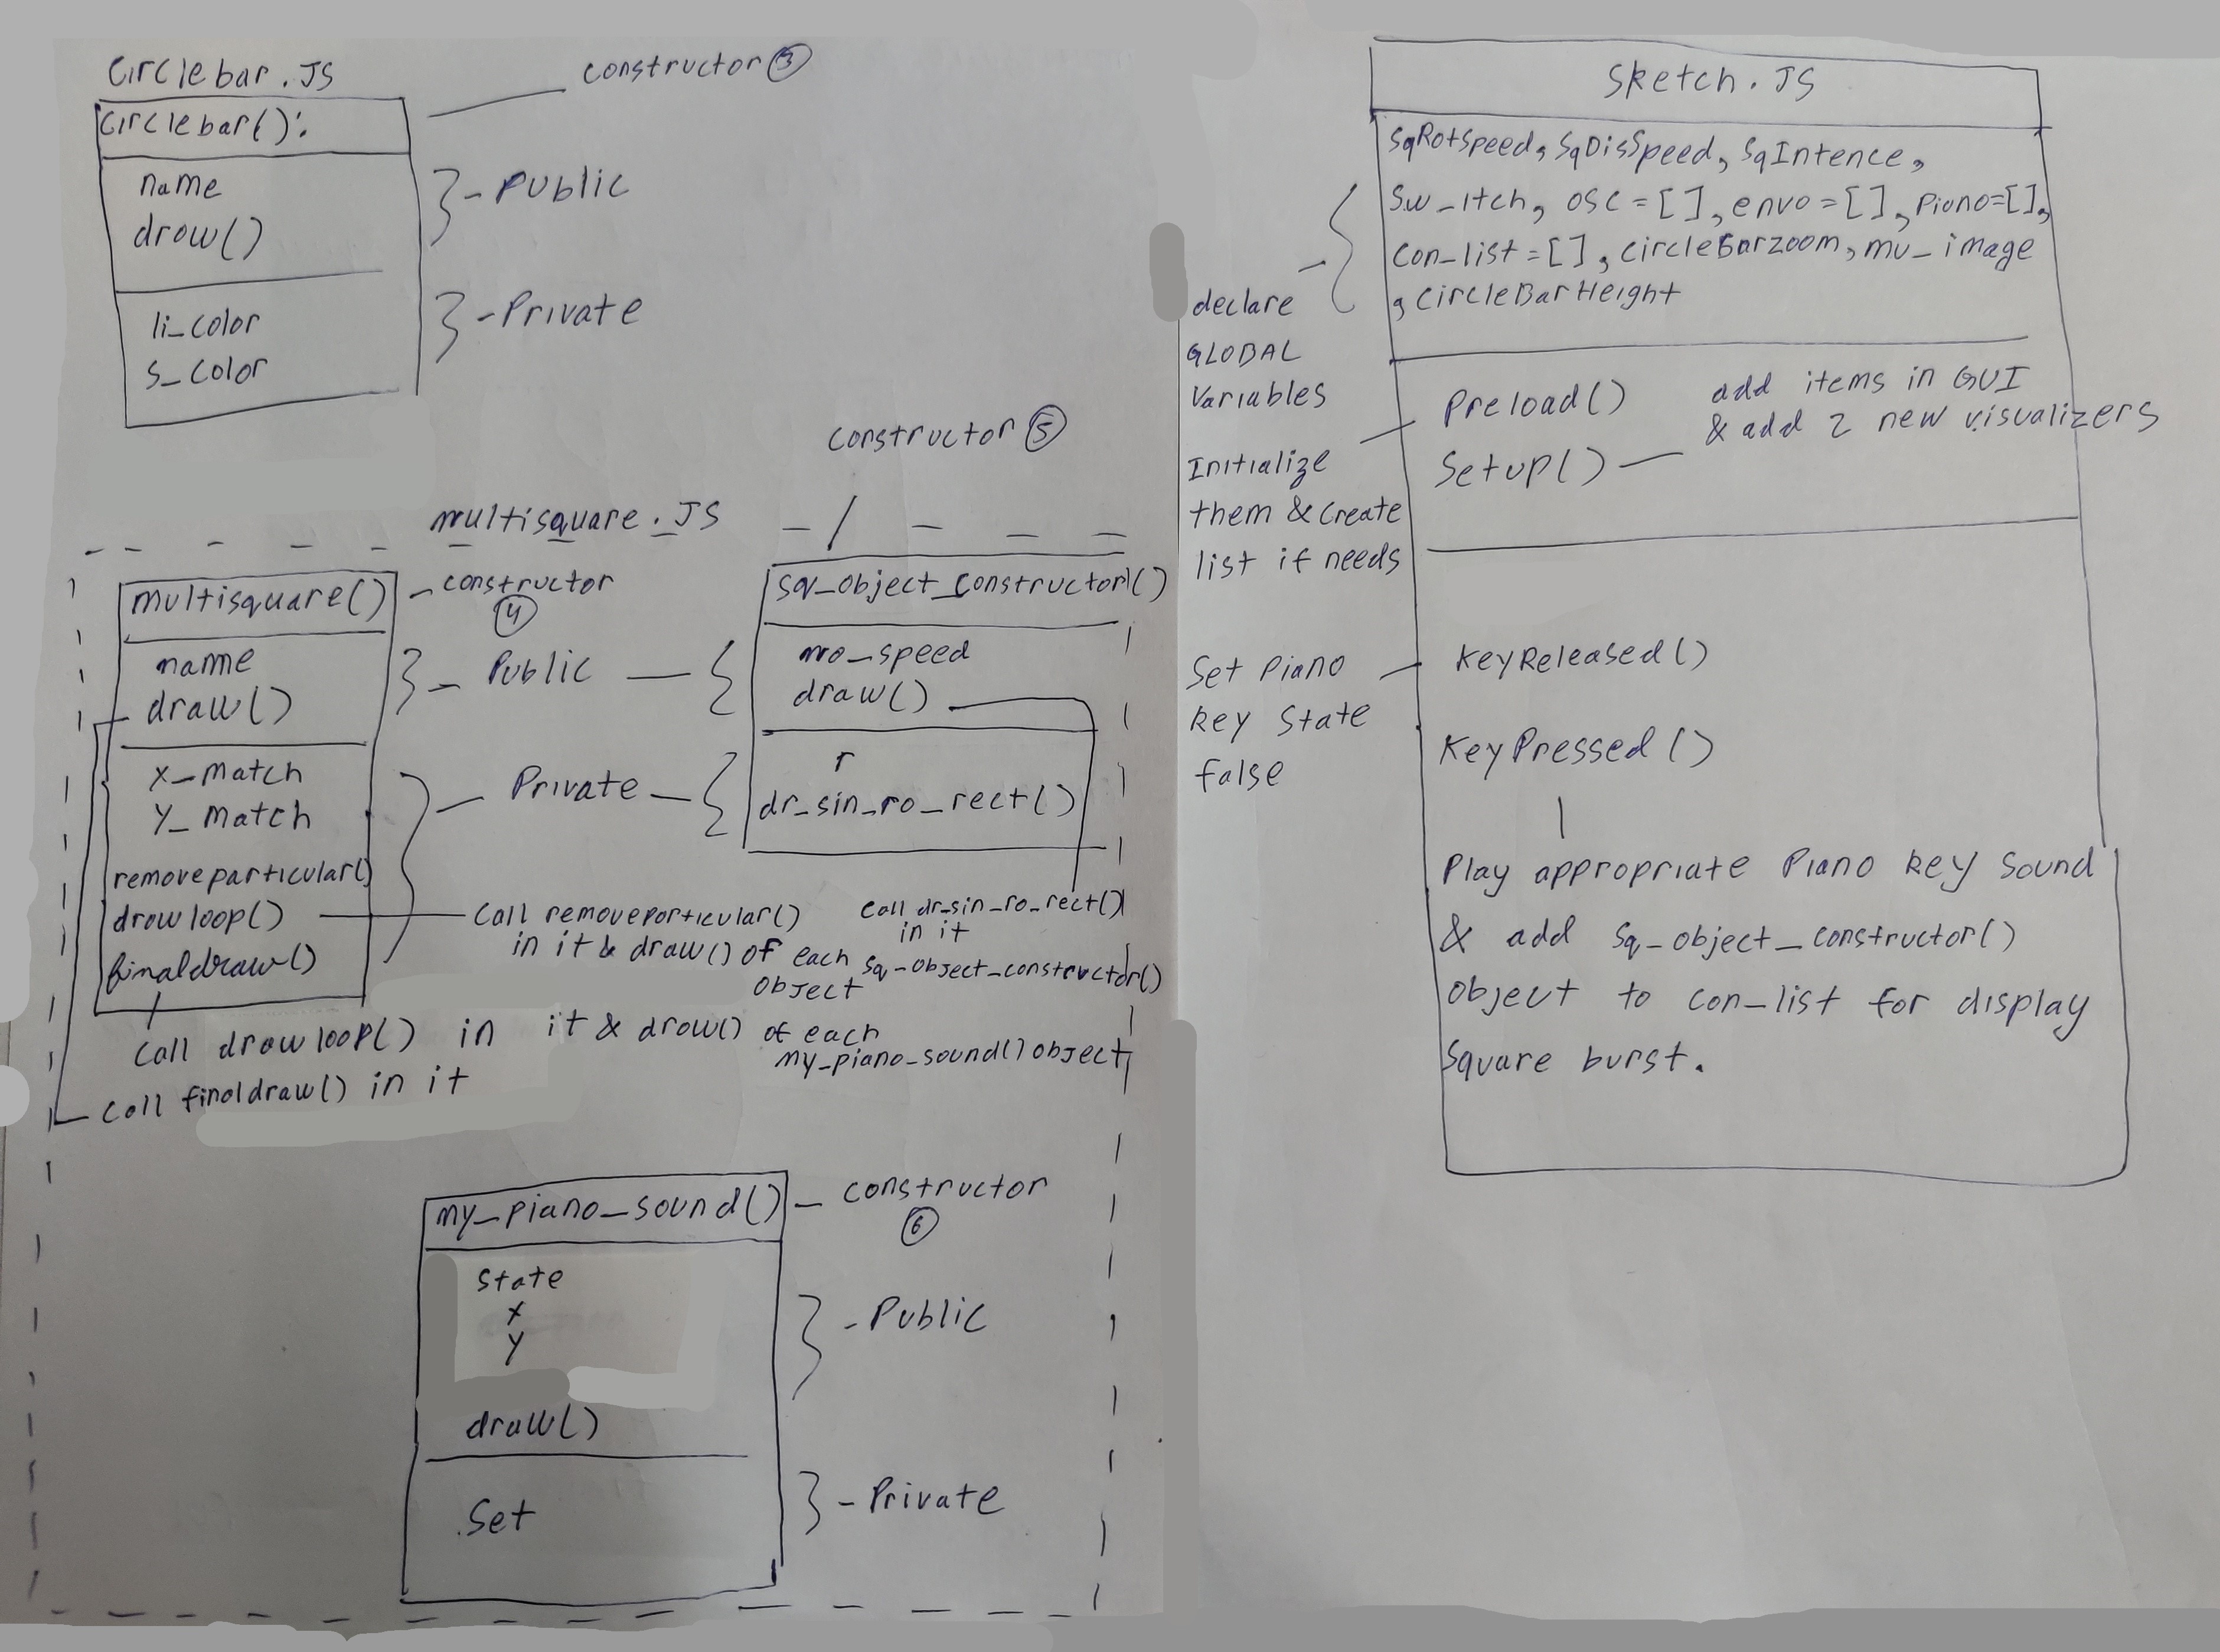 Circlebar.JS
constructor ③
Circlebar():
name
draw()
}-Public
li_color
s_color
}-Private
constructor ⑤
multisquare.JS
multisquare()
-constructor
④
name
draw()
} - Public - {
x_match
y_match
removeparticular()
drawloop()
finaldraw()
- Private - {
sq_object_constructor()
mo_speed
draw()
r
dr_sin_ro_rect()
Call removeparticular()
in it & draw() of each
sq_object_constructor()
object
Call dr_sin_ro_rect()
in it
Call drawloop() in it & draw() of each
my_piano_sound() object
Call finaldraw() in it
my_piano_sound()
- constructor
⑥
state
x
y
draw()
} - Public
Set
} - Private
Sketch.JS
SqRotSpeed, SqDisSpeed, SqIntence,
Sw_itch, osc=[], envo=[], Piano=[],
Con_list=[], circleBarzoom, mu_image
, CircleBarHeight
declare
GLOBAL
Variables
Preload()
add items in GUI
& add 2 new visualizers
Setup()
Initialize
them & Create
list if needs
KeyReleased()
Set Piano
key State
false
KeyPressed()
Play appropriate Piano key Sound
& add Sq_object_constructor()
object to con_list for display
Square burst.